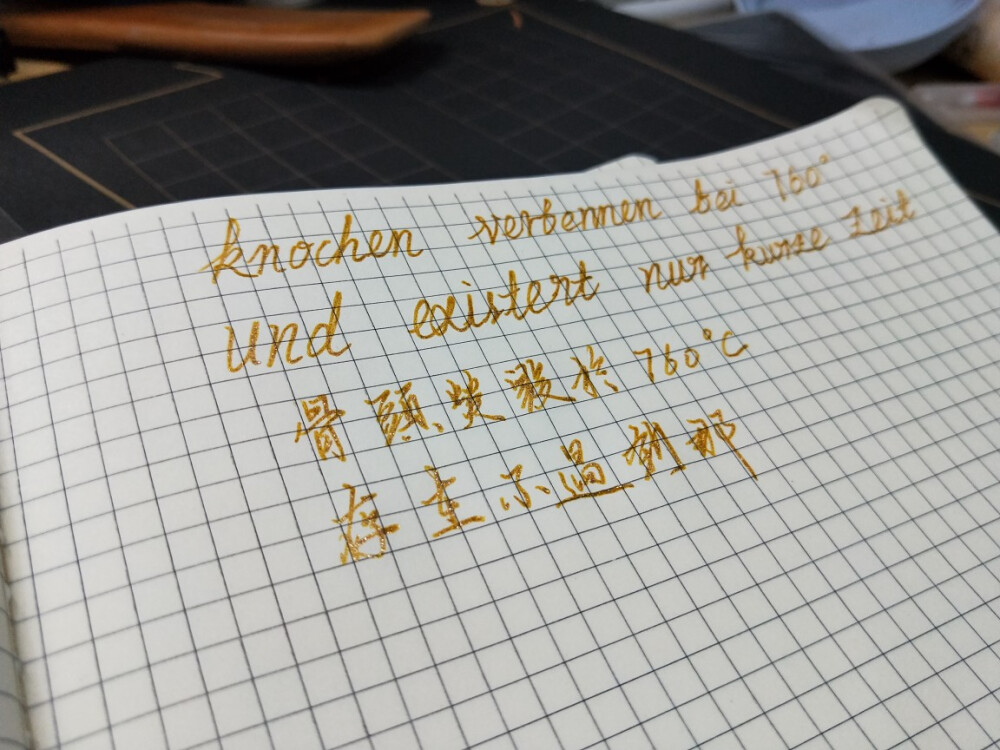 knochen verbennen bei 760°
und existert nur kurze zeit
骨頭焚毀於760°C
存在不過剎那